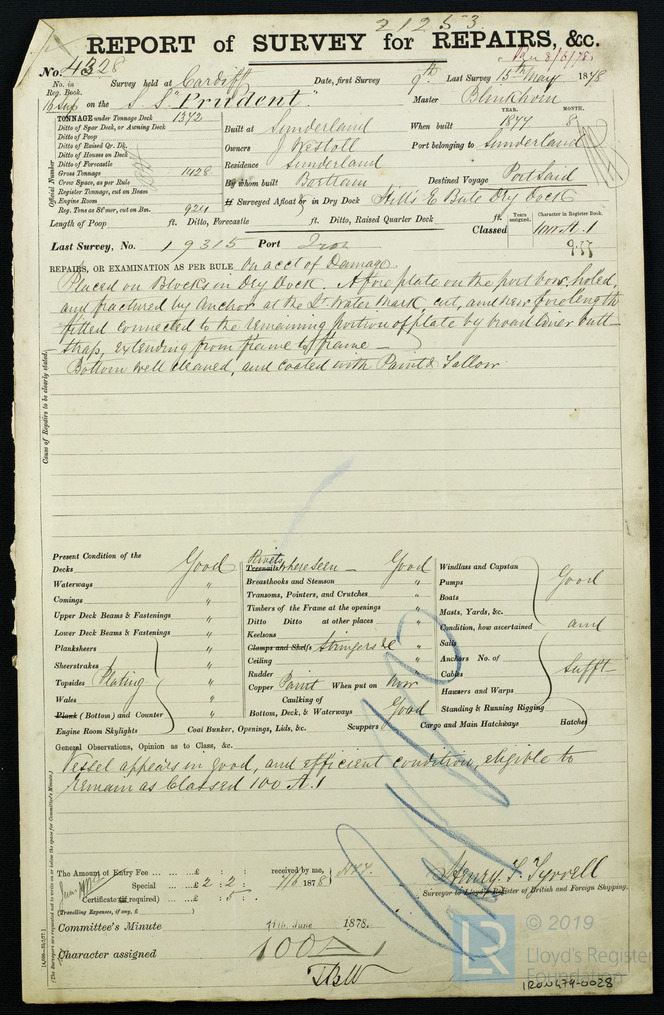 21253
REPORT of SURVEY for REPAIRS, &c.
Rec 8/6/78
No. 4328
No. in Reg. Book. Survey held at Cardiff Date, first Survey 9th Last Survey 15th May 1878
16 Sup on the S.S. "Prudent" Master Blinkhorn
TONNAGE under Tonnage Deck 1372
Ditto of Spar Deck, or Awning Deck
Ditto of Poop
Ditto of Raised Qr. Dk.
Ditto of Houses on Deck
Ditto of Forecastle
Gross Tonnage 1428
Crew Space, as per Rule
Register Tonnage, cut on Beam
Engine Room
Reg. Tons as St'mer, cut on Bm. 924
Official Number
Built at Sunderland When built YEAR. 1877 MONTH. 8
Owners J Westoll Port belonging to Sunderland
Residence Sunderland
By whom built Bartram Destined Voyage Port Said
If Surveyed Afloat or in Dry Dock Hill's E Bute Dry Dock
Length of Poop ft. Ditto, Forecastle ft. Ditto, Raised Quarter Deck ft.
Classed Years assigned. Character in Register Book. 100 A.1
9.77
Last Survey, No. 19315 Port Iron
REPAIRS, OR EXAMINATION AS PER RULE, on acct of Damage
Placed on Blocks in Dry Dock. A fore plate on the port bow, holed,
and fractured by Anchor at the Lt Water Mark cut, and new fore length
fitted connected to the remaining portion of plate by broad liner butt-
strap, extending from frame to frame —
Bottom well cleaned, and coated with Paint & Tallow
Cause of Repairs to be clearly stated.
Present Condition of the
Decks Good
Waterways "
Comings "
Upper Deck Beams & Fastenings "
Lower Deck Beams & Fastenings "
Planksheers "
Sheerstrakes "
Topsides Plating "
Wales "
Plank (Bottom) and Counter "
Engine Room Skylights Coal Bunker, Openings, Lids, &c. Scuppers Cargo and Main Hatchways Hatches
Rivets
Treenails where seen — Good
Breasthooks and Stemson "
Transoms, Pointers, and Crutches "
Timbers of the Frame at the openings "
Ditto Ditto at other places "
Keelsons "
Clamps and Shelfs Stringers &c "
Ceiling "
Rudder "
Copper Paint When put on Now
Caulking of
Bottom, Deck, & Waterways Good
Windlass and Capstan
Pumps Good
Boats
Masts, Yards, &c.
Condition, how ascertained and
Sails
Anchors No. of
Cables Sufft
Hawsers and Warps
Standing & Running Rigging
General Observations, Opinion as to Class, &c.
Vessel appears in good, and efficient condition, eligible to
remain as Classed 100 A.1
(The Surveyors are requested not to write on or below the space for Committee's Minute.)
The Amount of Entry Fee ... £ : : received by me,
Special ... £ 2 : 2 : 7/6 1878
Certificate (if required) ... £ : 5 :
(Travelling Expenses, if any, £ )
Henry F. Tyrrell
Surveyor to Lloyd's Register of British and Foreign Shipping.
Committee's Minute 11th June 1878.
Character assigned 100 A 1
© 2019
LR
Lloyd's Register
Foundation
IRON474-0028